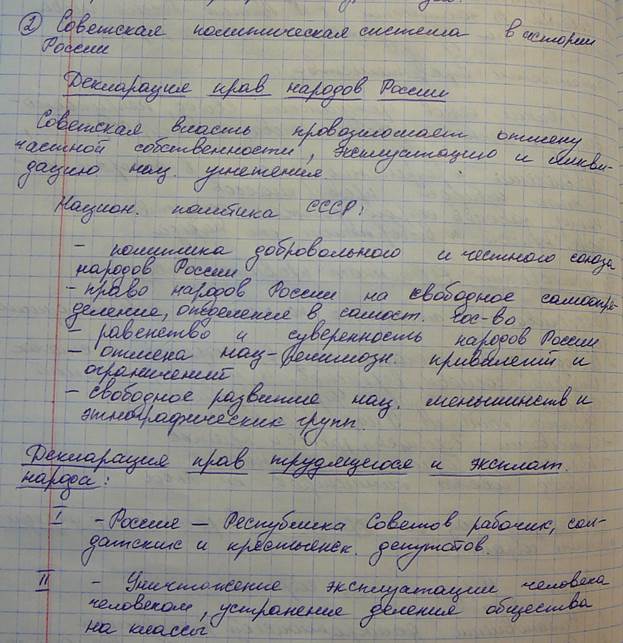 ② Советская политическая система в истории
России
Декларация прав народов России
Советская власть провозглашает отмену
частной собственности, эксплуатацию и ликви-
дацию нац. угнетения
Национ. политика СССР:
- политика добровольного и честного союза
народов России
- право народов России на свободное самоопре-
деление, отделение в самост. гос-во
- равенство и суверенность народов России
- отмена нац-религиозн. привилегий и
ограничений
- свободное развитие нац. меньшинств и
этнографических групп.
Декларация прав трудящегося и эксплат.
народа:
I - Россия — Республика Советов рабочих, сол-
датских и крестьянск. депутатов.
II - Уничтожение эксплуатации человека
человеком, устранение деления общества
на классы